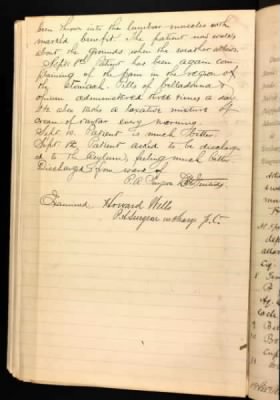 been thrown into the lumbar muscles with
marked benefit. The patient may walk
about the grounds when the weather allows.
Sept. 8th. Patient has been again com-
plaining of the pain in the region of
the stomach. Pills of belladonna &
opium administered three times a day.
He also takes a laxative mixture of
cream of tartar every morning.
Sept. 10. Patient is much better.
Sept. 12th. Patient asked to be discharg-
ed to the Asylum, feeling much better.
Discharged from ward
P. A. Surgeon
Examined Howard Wells
P.A. Surgeon in charge